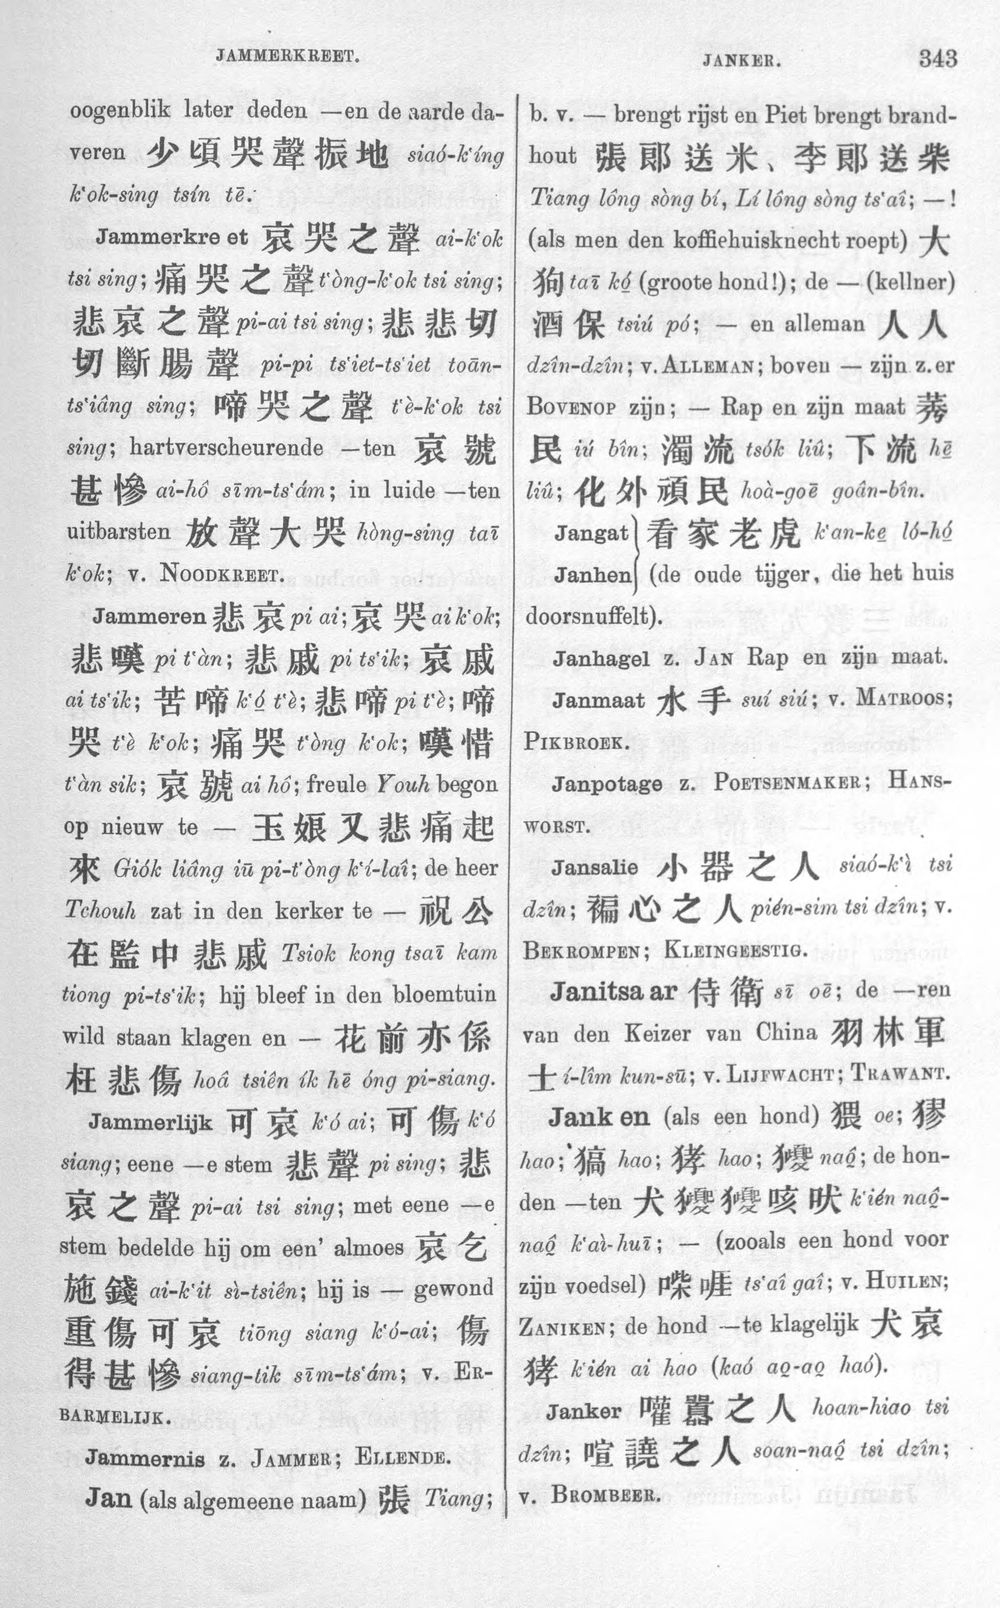 JAMMERKREET.
JANKER.
343
oogenblik later deden —en de aarde da-
veren 少頃哭聲振地 siaó-k‘íng
k‘ok-sing tsín tē.
Jammerkreet 哀哭之聲 ai-k‘ok
tsi sing; 痛哭之聲 t‘òng-k‘ok tsi sing;
悲哀之聲 pi-ai tsi sing; 悲悲切
切斷腸聲 pi-pi ts‘iet-ts‘iet toān-
ts‘iâng sing; 啼哭之聲 t‘è-k‘ok tsi
sing; hartverscheurende —ten 哀號
甚慘 ai-hô sīm-ts‘ám; in luide —ten
uitbarsten 放聲大哭 hòng-sing taī
k‘ok; v. NOODKREET.
Jammeren 悲哀 pi ai; 哀哭 ai k‘ok;
悲嘆 pi t‘àn; 悲戚 pi ts‘ik; 哀戚
ai ts‘ik; 苦啼 k‘ó t‘è; 悲啼 pi t‘è; 啼
哭 t‘è k‘ok; 痛哭 t‘òng k‘ok; 嘆惜
t‘àn sik; 哀號 ai hô; freule Youh begon
op nieuw te — 玉娘又悲痛起
來 Giók liâng iū pi-t‘òng k‘í-laî; de heer
Tchouh zat in den kerker te — 祝公
在監中悲戚 Tsiok kong tsaī kam
tiong pi-ts‘ik; hij bleef in den bloemtuin
wild staan klagen en — 花前亦係
枉悲傷 hoâ tsiên ík hē óng pi-siang.
Jammerlijk 可哀 k‘ó ai; 可傷 k‘ó
siang; eene —e stem 悲聲 pi sing; 悲
哀之聲 pi-ai tsi sing; met eene —e
stem bedelde hij om een’ almoes 哀乞
施錢 ai-k‘it sì-tsiên; hij is — gewond
重傷可哀 tiōng siang k‘ó-ai; 傷
得甚慘 siang-tik sīm-ts‘ám; v. ER-
BARMELIJK.
Jammernis z. JAMMER; ELLENDE.
Jan (als algemeene naam) 張 Tiang;
b. v. — brengt rijst en Piet brengt brand-
hout 張郎送米、李郎送柴
Tiang lông sòng bí, Lí lông sòng ts‘aî; —!
(als men den koffiehuisknecht roept) 大
狗 taī kó (groote hond!); de — (kellner)
酒保 tsiú pó; — en alleman 人人
dzîn-dzîn; v. ALLEMAN; boven — zijn z. er
BOVENOP zijn; — Rap en zijn maat 莠
民 iú bîn; 濁流 tsók liû; 下流 hē
liû; 化外頑民 hoà-goē goân-bîn.
Jangat } 看家老虎 k‘an-ke ló-hó
Janhen } (de oude tijger, die het huis
doorsnuffelt).
Janhagel z. JAN Rap en zijn maat.
Janmaat 水手 suí siú; v. MATROOS;
PIKBROEK.
Janpotage z. POETSENMAKER; HANS-
WORST.
Jansalie 小器之人 siaó-k‘ì tsi
dzîn; 褊心之人 pién-sim tsi dzîn; v.
BEKROMPEN; KLEINGEESTIG.
Janitsaar 侍衛 sī oē; de —ren
van den Keizer van China 羽林軍
士 í-lîm kun-sū; v. LIJFWACHT; TRAWANT.
Janken (als een hond) 猥 oe; 獟
hao; 猲 hao; 猪 hao; 獿 naô; de hon-
den —ten 犬獿獿咳吠 k‘ién naô-
naô k‘aì-huī; — (zooals een hond voor
zijn voedsel) 啀 ts‘aî gaî; v. HUILEN;
ZANIKEN; de hond —te klagelijk 犬哀
k‘ién ai hao (kaó ao-ao haó).
Janker 嚾嚻之人 hoan-hiao tsi
dzîn; 喧譊之人 soan-naô tsi dzîn;
v. BROMBEER.